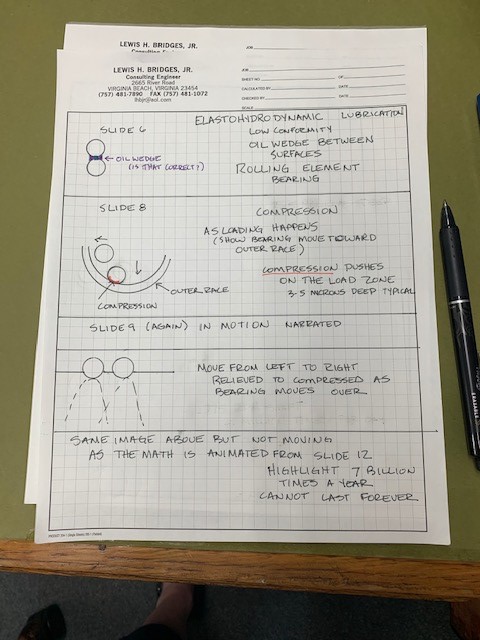 LEWIS H. BRIDGES, JR.
LEWIS H. BRIDGES, JR.
Consulting Engineer
2665 River Road
VIRGINIA BEACH, VIRGINIA 23454
(757) 481-7890 FAX (757) 481-1072
lhbjr@aol.com
JOB
JOB
SHEET NO. OF
CALCULATED BY DATE
CHECKED BY DATE
SCALE
SLIDE 6
OIL WEDGE
(IS THAT CORRECT?)
ELASTOHYDRODYNAMIC LUBRICATION
LOW CONFORMITY
OIL WEDGE BETWEEN
SURFACES
ROLLING ELEMENT
BEARING
SLIDE 8
OUTER RACE
COMPRESSION
COMPRESSION
AS LOADING HAPPENS
(SHOW BEARING MOVE TOWARD
OUTER RACE)
COMPRESSION PUSHES
ON THE LOAD ZONE
3-5 MICRONS DEEP TYPICAL
SLIDE 9 (AGAIN) IN MOTION NARRATED
MOVE FROM LEFT TO RIGHT
RELIEVED TO COMPRESSED AS
BEARING MOVES OVER
SAME IMAGE ABOVE BUT NOT MOVING
AS THE MATH IS ANIMATED FROM SLIDE 12
HIGHLIGHT 7 BILLION
TIMES A YEAR
CANNOT LAST FOREVER